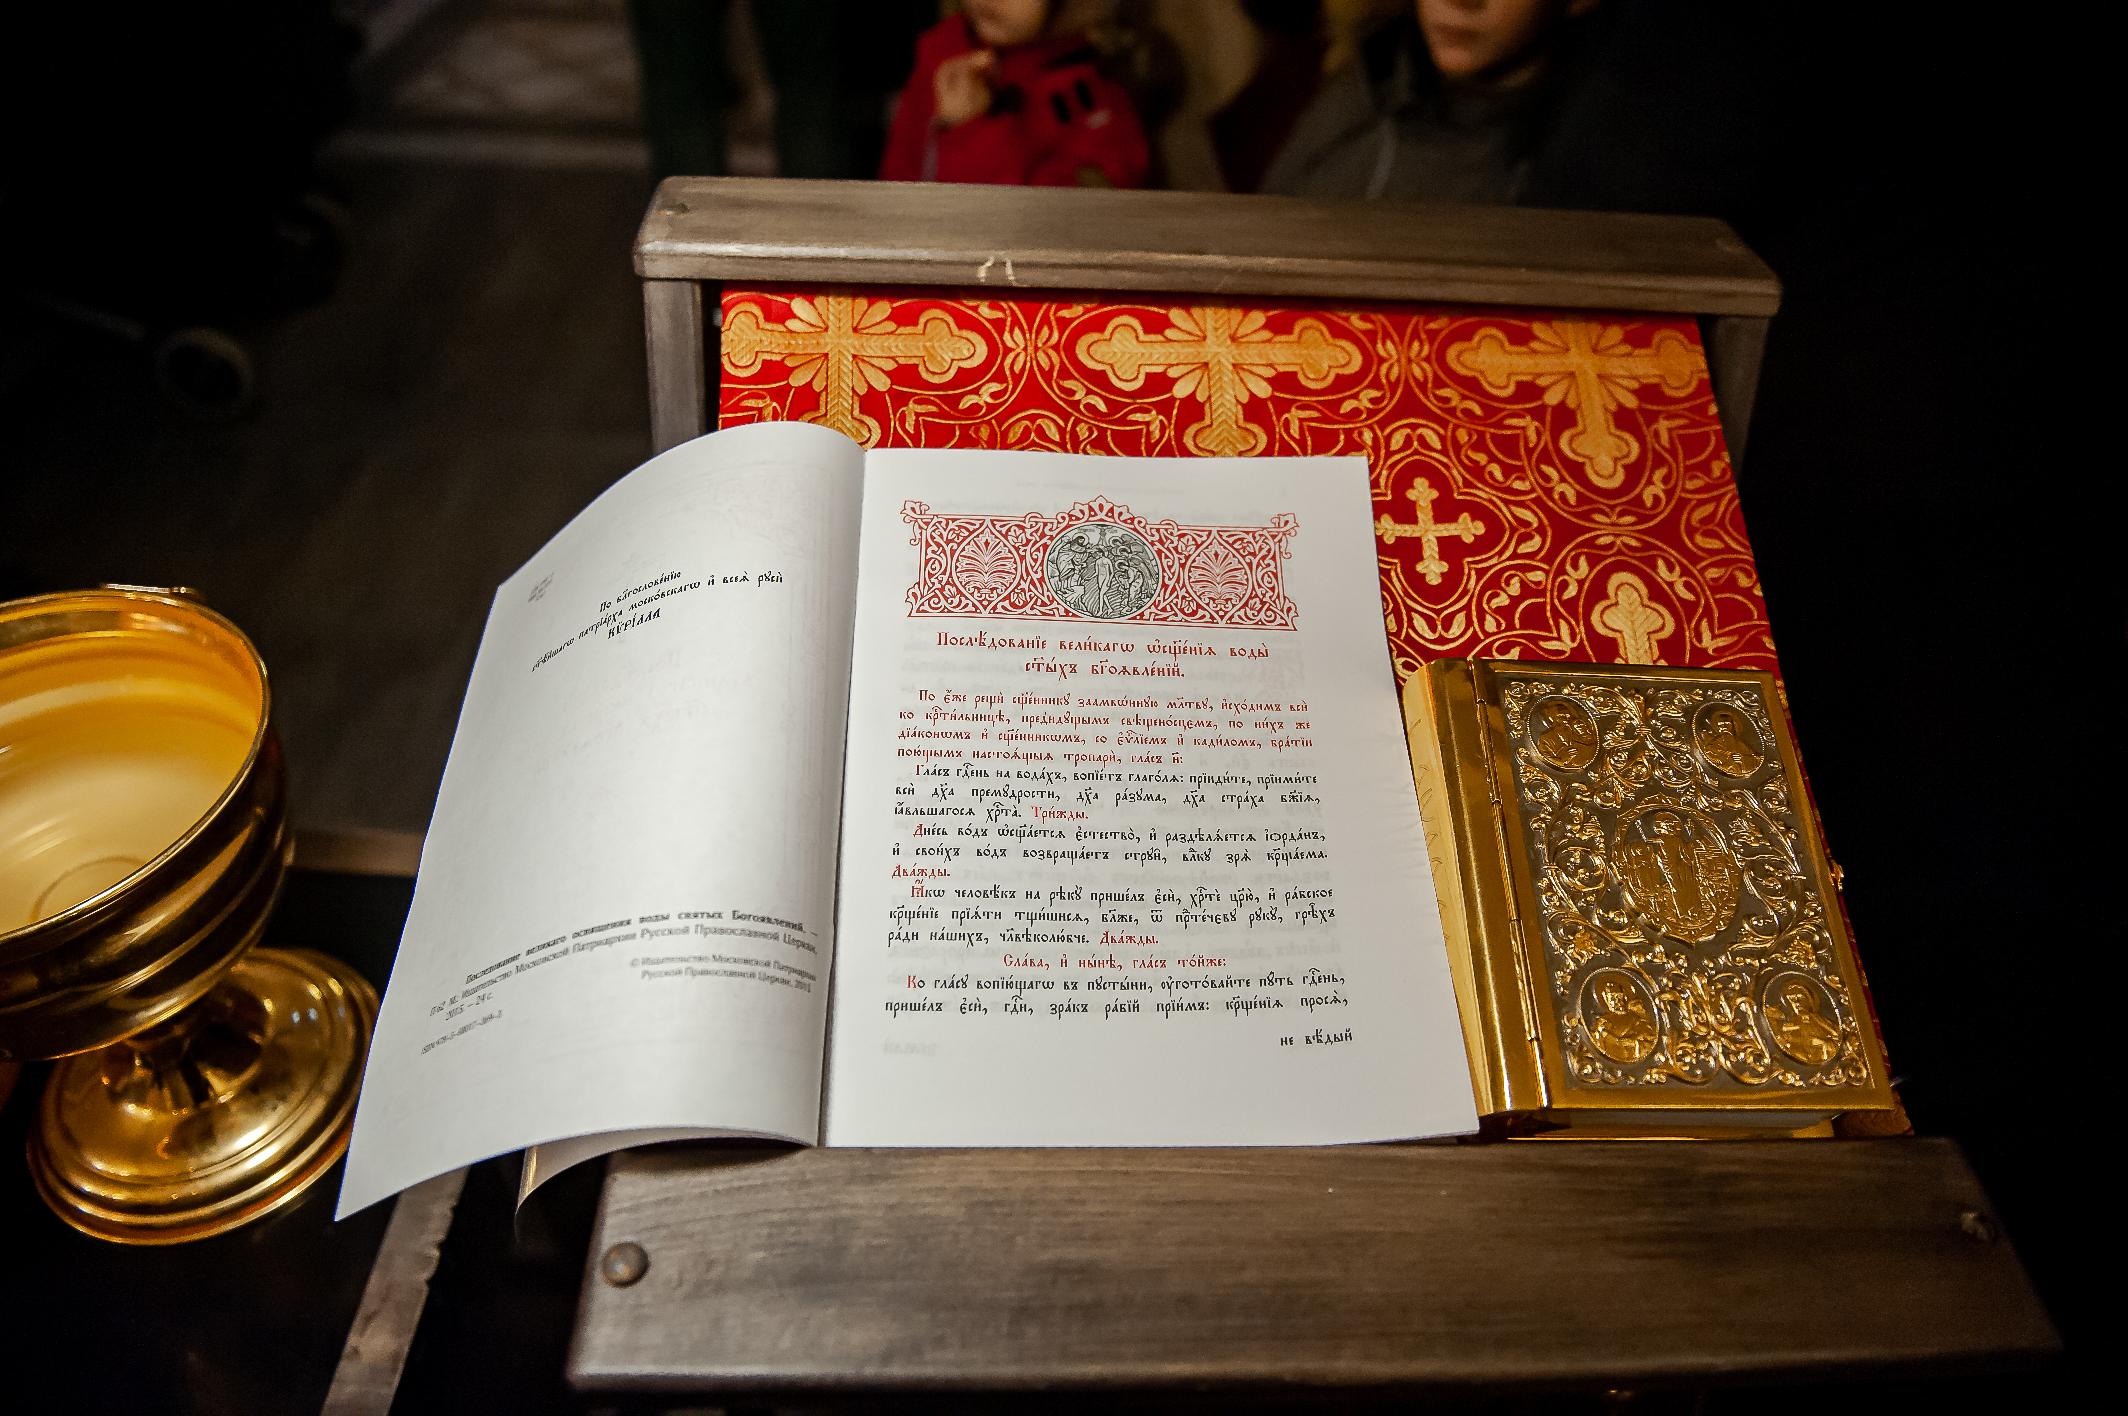 По бл҃гослове́нїю
ст҃ѣ́йшагѡ патрїа́рха моско́вскагѡ и҆ всеѧ̀ рꙋсѝ
КѴРІ́ЛЛА
Последование великаго освящения воды святых Богоявлений. —
М.: Издательство Московской Патриархии Русской Православной Церкви,
2015. — 24 с.
© Издательство Московской Патриархии
Русской Православной Церкви, 2015
Послѣ́дованїе вели́кагѡ ѡ҆сщ҃е́нїѧ воды̀
ст҃ы́хъ бг҃оѧвле́нїй.
По є҆́же рещѝ сщ҃е́нникꙋ заамвѡ́ннꙋю мл҃твꙋ, и҆схо́димъ всѝ
ко кр҃ти́льницѣ, предидꙋ́щымъ свѣщено́сцємъ, по ни́хъ же
дїа́конѡмъ и҆ сщ҃е́нникѡмъ, со є҆ѵⷢ҇лїемъ и҆ кади́ломъ, бра́тїи
пою́щымъ настоѧ́щыѧ тропарѝ, гла́съ и҃:
Гла́съ гдⷭ҇ень на вода́хъ, вопїе́тъ глаго́лѧ: прїиди́те, прїими́те
всѝ дх҃а премꙋ́дрости, дх҃а ра́зꙋма, дх҃а стра́ха бж҃їѧ,
ꙗ҆́вльшагосѧ хрⷭ҇та̀. Три́жды.
Дне́сь во́дъ ѡ҆сщ҃а́етсѧ є҆стество̀, и҆ раздѣлѧ́етсѧ і҆ѻрда́нъ,
и҆ свои́хъ во́дъ возвраща́етъ стрꙋи̑, влⷣкꙋ зрѧ̀ кр҃ща́ема.
Два́жды.
Ꙗ҆́кѡ человѣ́къ на рѣ́кꙋ прише́лъ є҆сѝ, хрⷭ҇тѐ цр҃ю̀, и҆ ра́бское
кр҃ще́нїе прїѧ́ти тщи́шисѧ, бл҃же, ѿ прⷣте́чевꙋ рꙋкꙋ̀, грѣ̑хъ
ра́ди на́шихъ, чл҃вѣколю́бче. Два́жды.
Сла́ва, и҆ ны́нѣ, гла́съ то́йже:
Ко гла́сꙋ вопїю́щагѡ въ пꙋсты́ни, ᲂу҆гото́вайте пꙋ́ть гдⷭ҇ень,
прише́лъ є҆сѝ, гдⷭ҇и, зра́къ ра́бїй прїи́мъ: кр҃ще́нїѧ просѧ̀,
не вѣ́дый